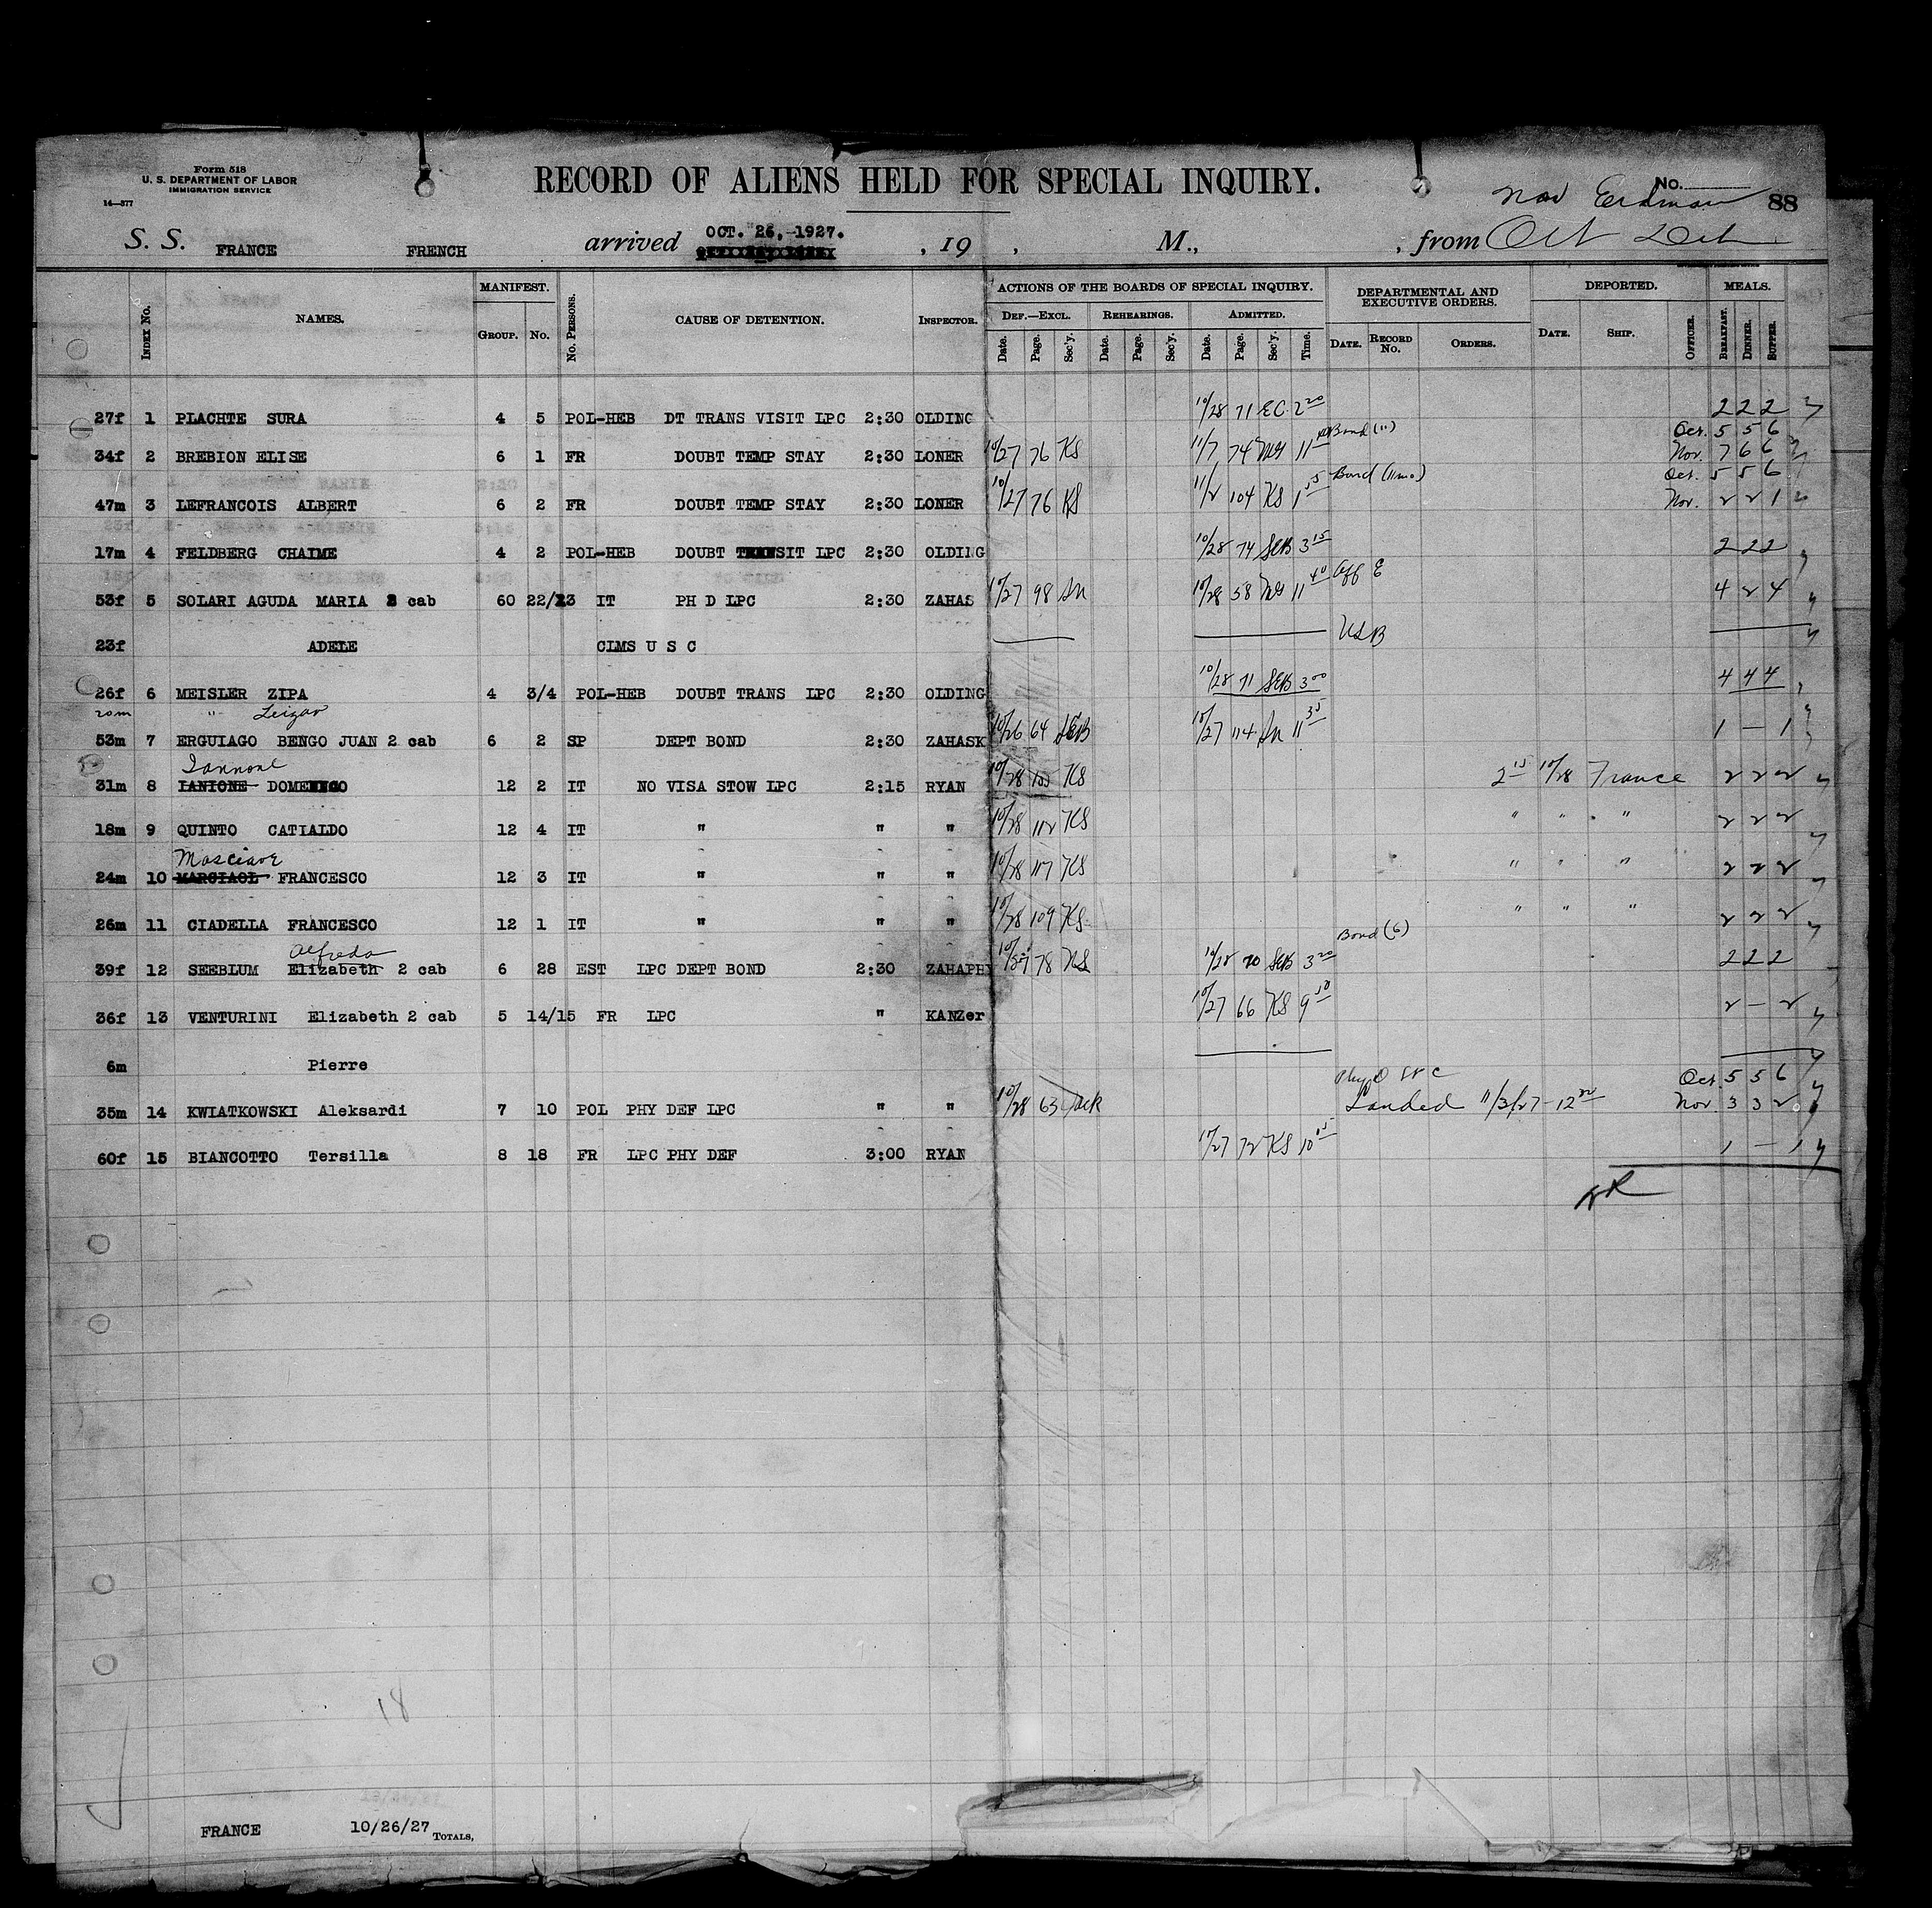 Form 518
U. S. DEPARTMENT OF LABOR
IMMIGRATION SERVICE
14—577
RECORD OF ALIENS HELD FOR SPECIAL INQUIRY.
No.
Nov Erdman 88
S. S. FRANCE FRENCH arrived OCT. 26, 1927. , 19 , M., , from Oct
INDEX No. NAMES. MANIFEST. GROUP. No. No. PERSONS. CAUSE OF DETENTION. INSPECTOR. ACTIONS OF THE BOARDS OF SPECIAL INQUIRY. DEPARTMENTAL AND EXECUTIVE ORDERS. DEPORTED. MEALS.
DEF.—EXCL. REHEARINGS. ADMITTED.
Date. Page. Sec'y. Date. Page. Sec'y. Date. Page. Sec'y. Time. DATE. RECORD No. ORDERS. DATE. SHIP. OFFICER. BREAKFAST. DINNER. SUPPER.
27f 1 PLACHTE SURA 4 5 POL-HEB DT TRANS VISIT LPC 2:30 OLDING 10/28 71 EC 2 20 2 2 2
Bond (11) Oct. 5 5 6
34f 2 BREBION ELISE 6 1 FR DOUBT TEMP STAY 2:30 LONER 10/27 76 KS 11/7 74 11 Nov. 7 6 6
Bond (11mo) Oct. 5 5 6
47m 3 LEFRANCOIS ALBERT 6 2 FR DOUBT TEMP STAY 2:30 LONER 10/27 76 KS 11/2 104 KS 1 55 Nov. 2 2 1
17m 4 FELDBERG CHAIME 4 2 POL-HEB DOUBT TRANSIT LPC 2:30 OLDING 10/28 74 SEB 3 15 2 2 2
53f 5 SOLARI AGUDA MARIA 2 cab 60 22/23 IT PH D LPC 2:30 ZAHAS 10/27 98 10/28 58 11 40 4 2 4
23f ADELE CLMS U S C USB
26f 6 MEISLER ZIPA 4 3/4 POL-HEB DOUBT TRANS LPC 2:30 OLDING 10/28 71 SEB 3 00 4 4 4
20m " Leizar
53m 7 ERGUIAGO BENGO JUAN 2 cab 6 2 SP DEPT BOND 2:30 ZAHASK 10/26 64 SEB 10/27 114 11 35 1 — 1
Iannone
31m 8 IANIONE DOMENICO 12 2 IT NO VISA STOW LPC 2:15 RYAN 10/28 105 KS 2 15 10/28 France 2 2 2
18m 9 QUINTO CATIALDO 12 4 IT " " " 10/28 112 KS " " " 2 2 2
Masciave
24m 10 MARCIAOL FRANCESCO 12 3 IT " " " 10/28 117 KS " " " 2 2 2
26m 11 CIADELLA FRANCESCO 12 1 IT " " " 10/28 109 KS " " " 2 2 2
Alfreda Bond (6)
39f 12 SEEBLUM Elizabeth 2 cab 6 28 EST LPC DEPT BOND 2:30 ZAHAPHY 10/27 78 10/28 70 SEB 3 20 2 2 2
36f 13 VENTURINI Elizabeth 2 cab 5 14/15 FR LPC " KANZer 10/27 66 KS 9 50 2 — 2
6m Pierre
Oct. 5 5 6
35m 14 KWIATKOWSKI Aleksardi 7 10 POL PHY DEF LPC " " 10/28 63 Landed 11/3/27 - 12 Nov. 3 3 2
60f 15 BIANCOTTO Tersilla 8 18 FR LPC PHY DEF 3:00 RYAN 10/27 72 KS 10 15 1 — 1
18
FRANCE 10/26/27 TOTALS,